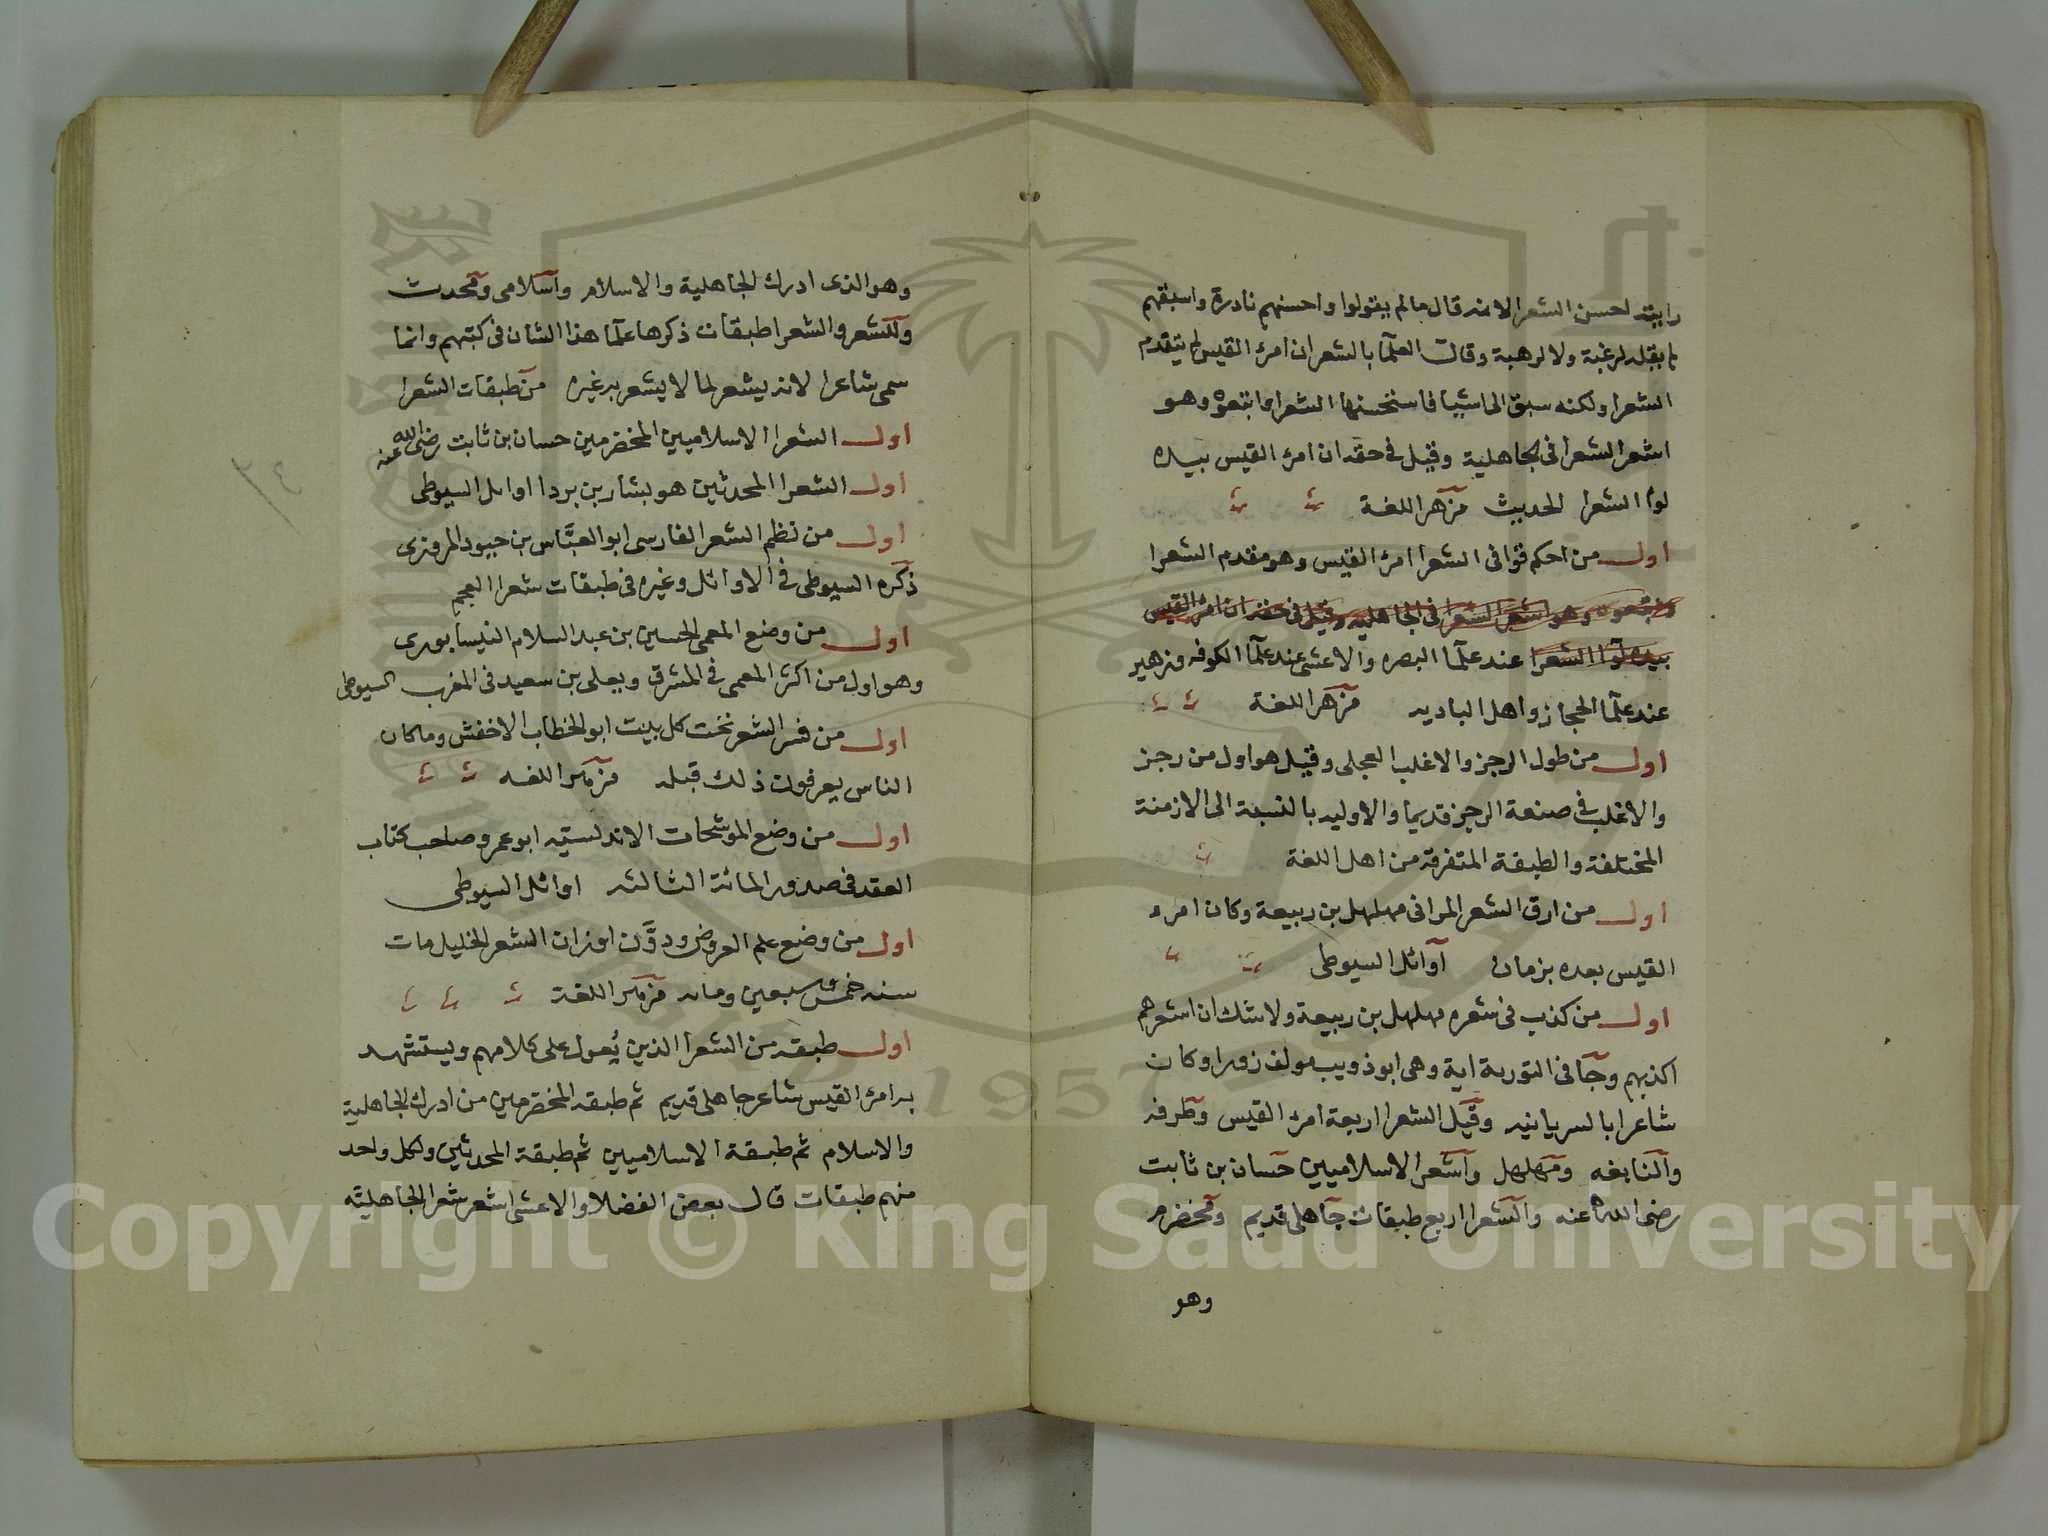 رايته احسن الشعرا لانه قال مالم يقولوا واحسنهم نادرة واسبقهم
لم يقله لرغبة ولا لرهبة وقال العلما بالشعر ان امرؤ القيس لم يتقدم
الشعرا ولكنه سبق الى اشيا فاستحسنها الشعرا واتبعوه وهو
اشعر الشعرا فى الجاهلية وقيل فى حقه ان امرؤ القيس بيده
لوا الشعرا الحديث مزهر اللغة
اول من احكم قوافى الشعرا امرؤ القيس وهو مقدم الشعرا
واتبعوه وهو اشعر الشعرا فى الجاهلية وقيل فى حقه ان امرؤ القيس
بيده لوا الشعرا عند علما البصره والاعشى عند علما الكوفه وزهير
عند علما الحجاز واهل الباديه مزهر اللغة
اول من طول الرجز والاغلب العجلى وقيل هو اول من رجز
والاغلب فى صنعة الرجز قديما والاوليه بالنسبة الى الازمنة
المختلفة والطبقة المتفرقة من اهل اللغة
اول من ارق الشعر المراثى مهلهل بن ربيعة وكان امرء
القيس بعده بزمان اوائل السيوطى
اول من كذب فى شعره مهلهل بن ربيعة ولا شك ان اشعرهم
اكذبهم وجا فى التورية اية وهى ابو ذويب مولف زورا وكان
شاعرا بالسريانيه وقيل الشعرا اربعة امرؤ القيس وطرفه
والنابغه ومهلهل واشعر الاسلاميين حسان بن ثابت
رضى الله عنه والشعرا اربع طبقات جاهلى قديم ومخضرم
وهو
وهو الذى ادرك الجاهلية والاسلام واسلامى ومحدث
وللشعر والشعرا طبقات ذكرها علما هذا الشان فى كتبهم وانما
سمى شاعرا لانه يشعر لما لا يشعر به غيره من طبقات الشعرا
اول الشعرا الاسلاميين المخضرمين حسان بن ثابت رضى الله عنه
اول الشعرا المحدثين هو بشار بن برد اوايل السيوطى
اول من نظم الشعر الفارسى ابو العباس بن حيود المروزى
ذكره السيوطى فى الاوائل وغيره فى طبقات شعرا العجم
اول من وضع المعمى الحسين بن عبد السلام النيسابورى
وهو اول من اكثر المعمى فى المشرق ويعلى بن سعيد فى المغرب السيوطى
اول من فسر الشعر تحت كل بيت ابو الخطاب الاخفش وما كان
الناس يعرفون ذلك قبله مزهر اللغه
اول من وضع الموشحات الاندلسيه ابو عمر وصاحب كتاب
العقد فى صدور المائة الثالثه اوائل السيوطى
اول من وضع علم العروض ودون اوزان الشعر الخليل مات
سنه خمس وسبعين ومايه مزهر اللغة
اول طبقه من الشعرا الذين يعول على كلامهم ويستشهد
به امرؤ القيس شاعر جاهلى قديم ثم طبقه المخضرمين من ادرك الجاهلية
والاسلام ثم طبقة الاسلاميين ثم طبقة المحدثين ولكل واحد
منهم طبقات قال بعض الفضلا والاعشى اشعر شعرا الجاهليه
٢٤
1957
Copyright © King Saud University